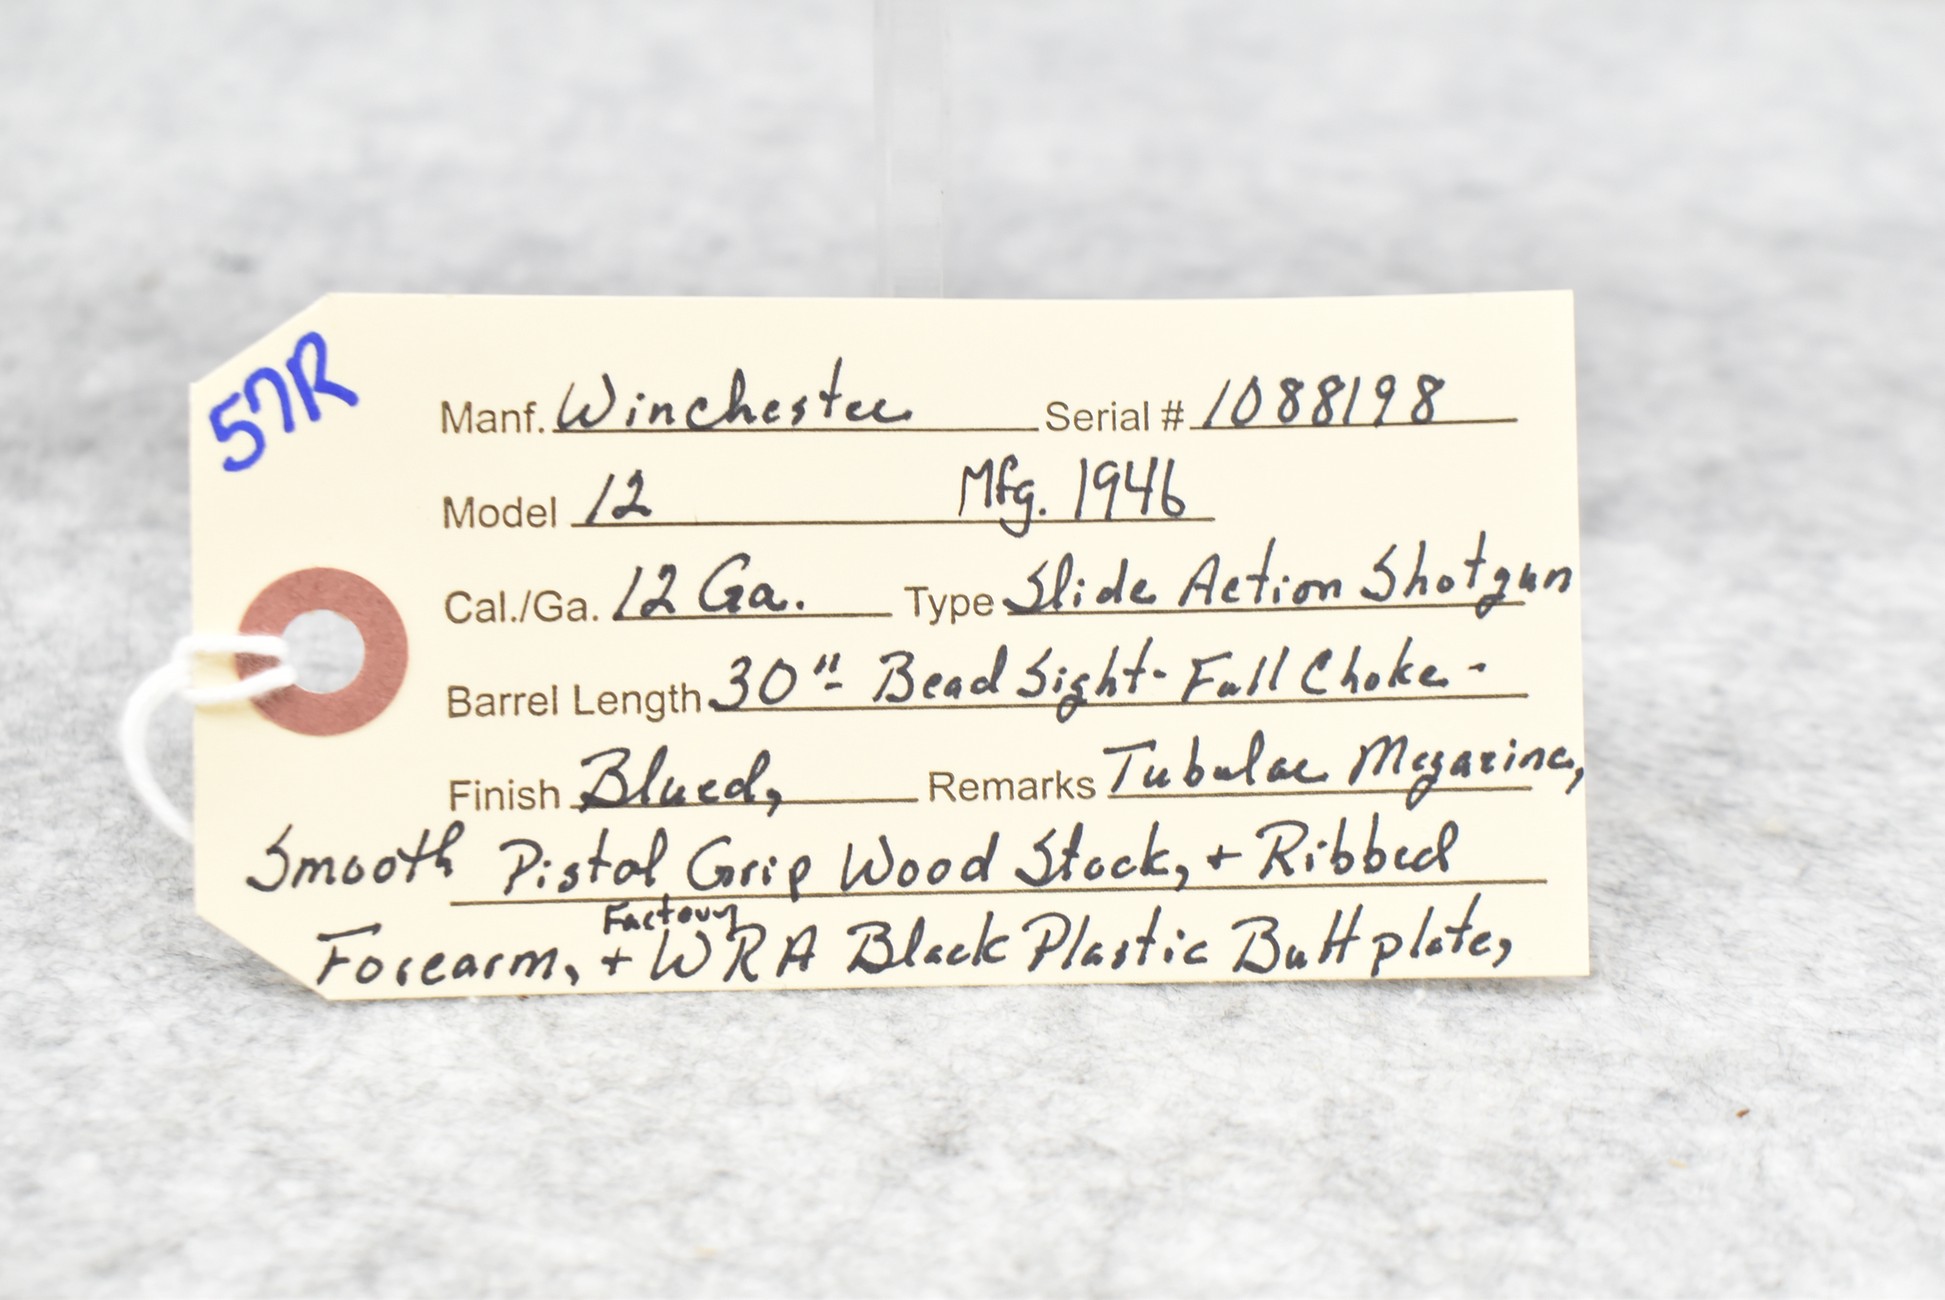 57R
Manf. Winchester Serial # 1088198
Model 12 Mfg. 1946
Cal./Ga. 12 Ga. Type Slide Action Shotgun
Barrel Length 30"- Bead Sight- Full Choke-
Finish Blued, Remarks Tubular Magazine,
Smooth Pistol Grip Wood Stock, + Ribbed
Factory
Forearm, + WRA Black Plastic Buttplate,